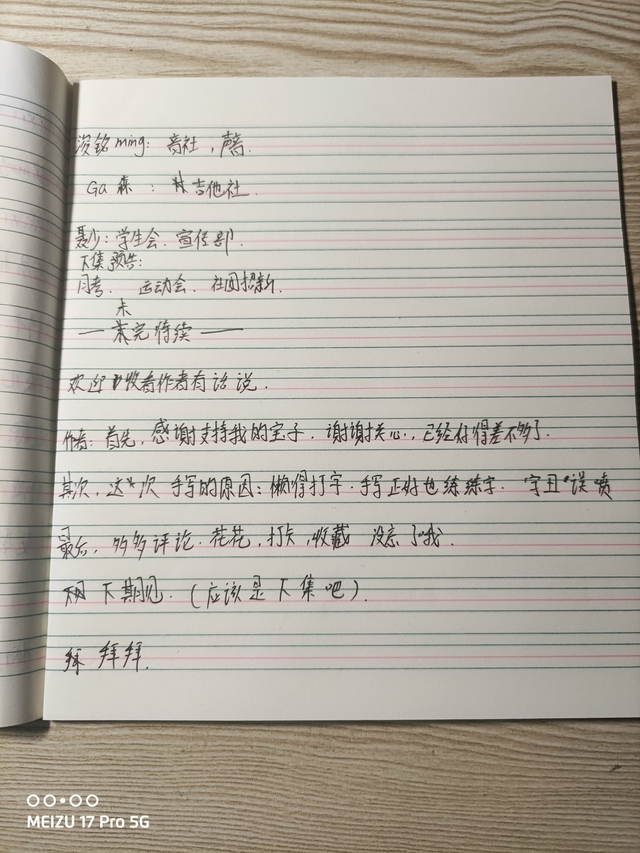 铭ming：音社，声音.
Ga森：吉他社.
聂少：学生会.宣传部.
下集预告：
月考. 运动会. 社团招新.
未
——完待续——
欢迎收看作者有话说.
作者：首先，感谢支持我的宝子.谢谢关心，已经好得差不多了.
其次，这次 手写的原因：懒得打字；手写正好也练练字. 字丑误喷
最后，多多评论.花花，打卡，收藏 没忘了我.
下期见.（应该是下集吧）.
拜拜.
MEIZU 17 Pro 5G